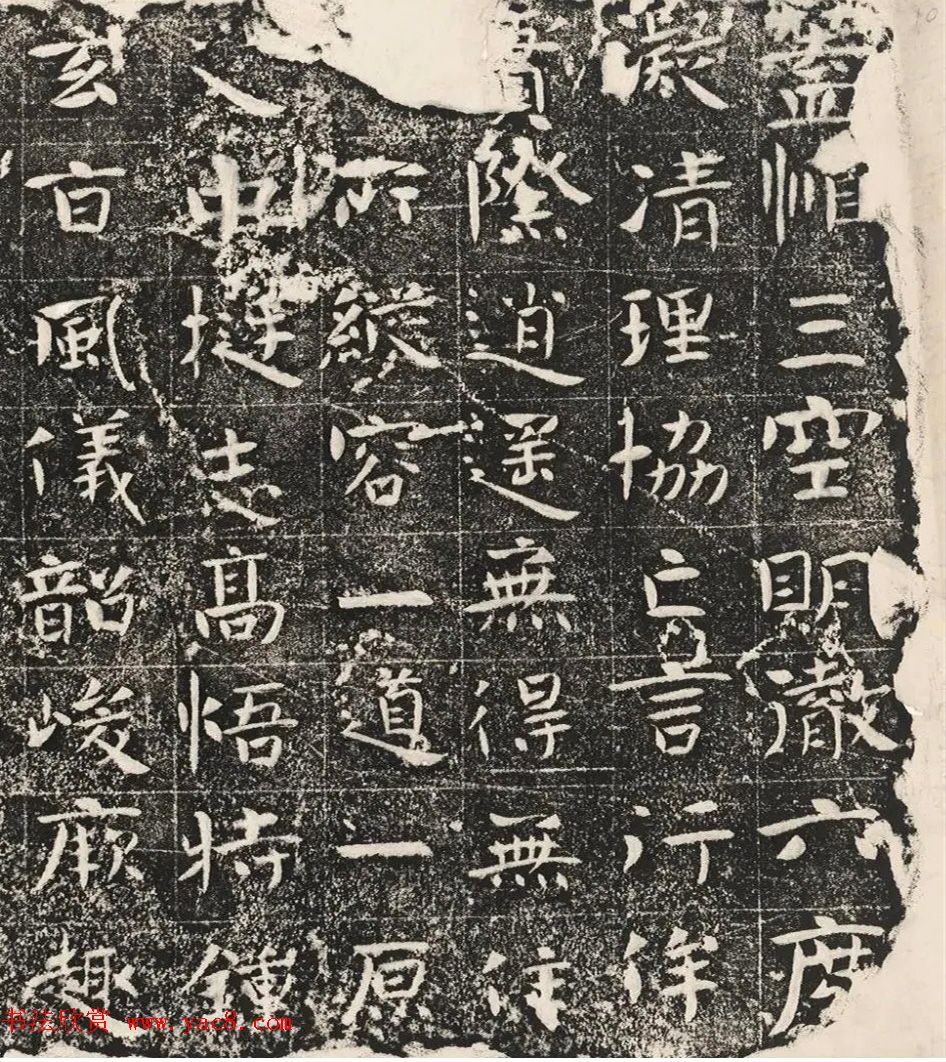 三空明澈六度
凝清理協亡言行侔
際逍遥無得無住
所縱容一道一原
中挺志高悟特鍾
玄旨風儀韶峻厥趣
书法欣赏 www.yac8.com